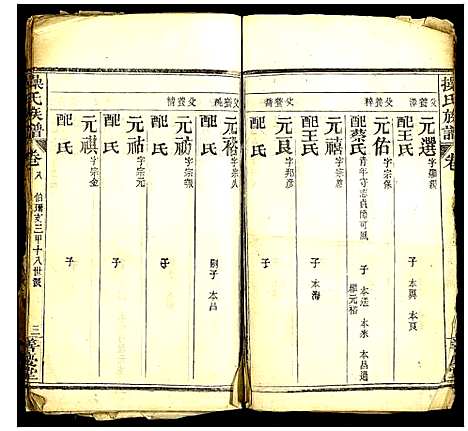 操氏族譜
卷
父養
元選 字
配王氏
子 本興 本良
父養
元佑 字宗保
配蔡氏 青年守志貞節可風
子 本法 本來 本昌過
繼元裕
元禧 字宗
配王氏
子 本海
父養
元良 字邦彥
配氏
子
父養
元裕 字宗
配氏
嗣子 本昌
父養
元祊 字宗
配氏
子
元祜 字宗元
配氏
子
元祺 字宗金
配氏
子
操氏族譜
卷八
伯 支三甲十八世
三